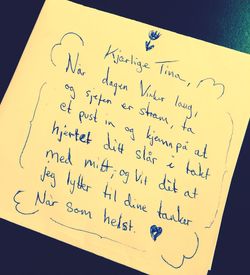 Kjærlige Tina,
Når dagen virker laug,
og sjefen er stram, ta
et pust inn og kjenn på at
hjertet ditt slår i takt
med mitt, og vit dit at
Jeg lytter til dine tanker
Når som helst.